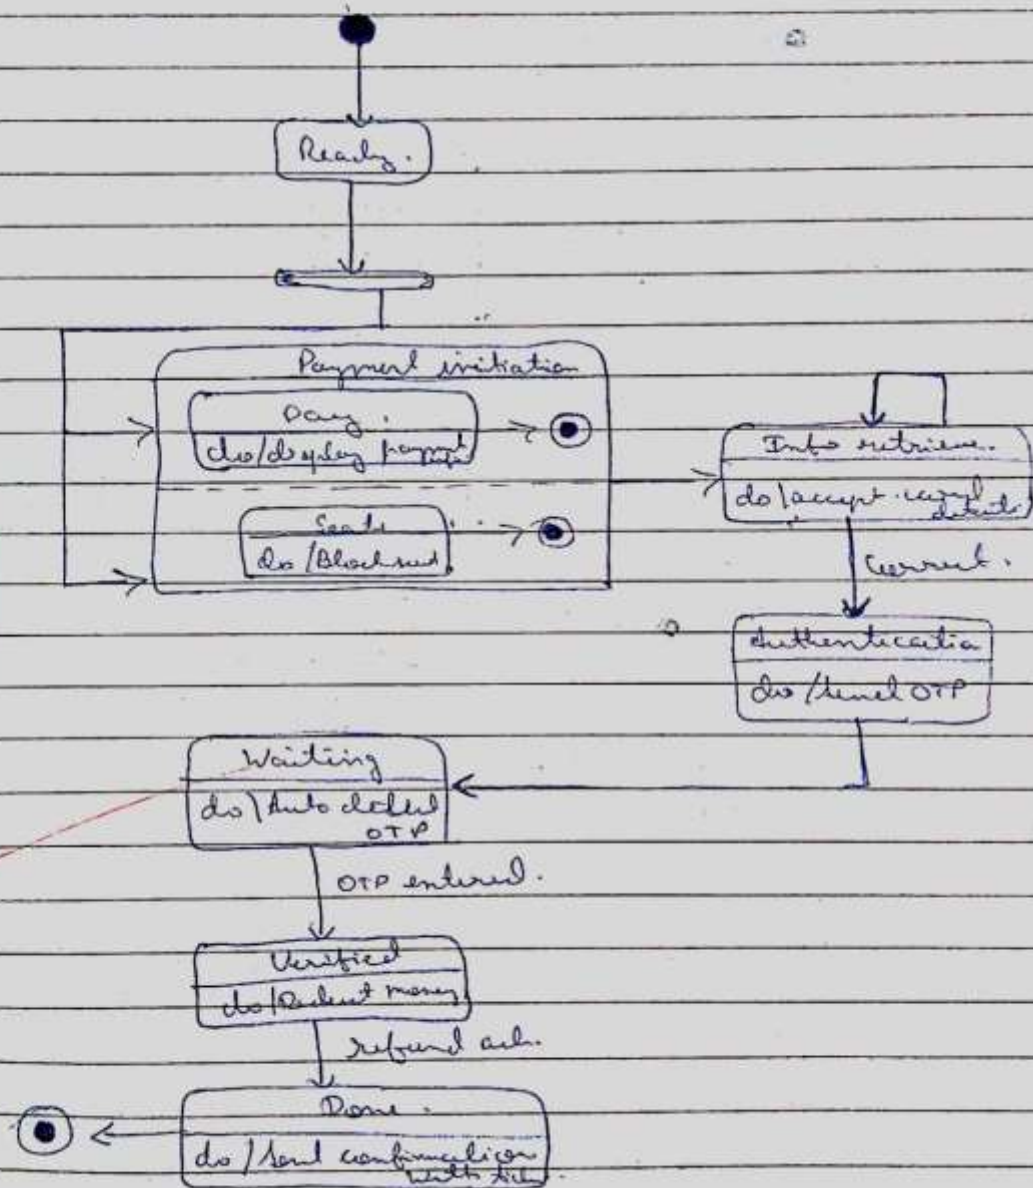 Ready.
Payment initiation
Pay.
do/display payment
Seats
do/Block seat
Info retrieve.
do/accept card
details
Correct.
Authentication
do/send OTP
Waiting
do\Auto detect
OTP
OTP entered.
Verified
do/Deduct money
refund ack.
Done.
do/Send confirmation
with